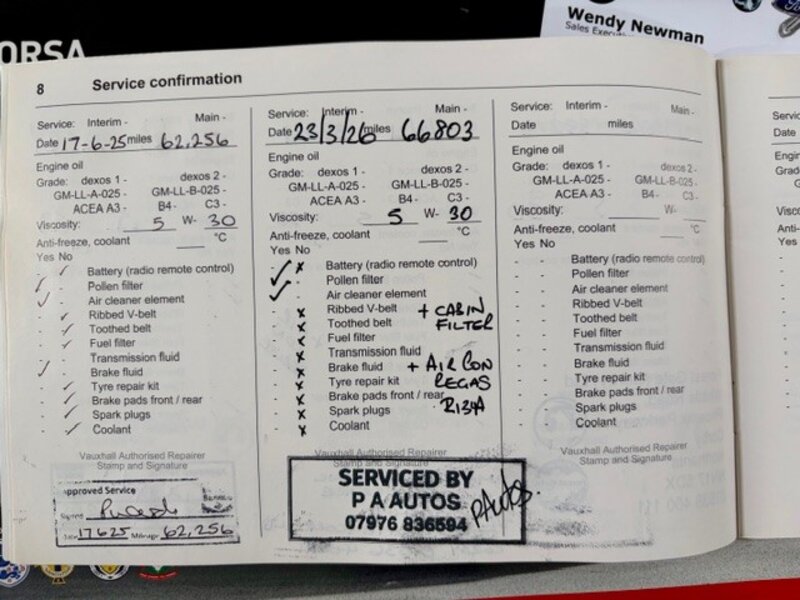 ORSA
Wendy Newman
8 Service confirmation
Service: Interim - Main -
Date 17-6-25 miles 62,256
Engine oil
Grade: dexos 1 - dexos 2 -
GM-LL-A-025 - GM-LL-B-025 -
ACEA A3 - B4 - C3 -
Viscosity: 5 W- 30
Anti-freeze, coolant °C
Yes No
Battery (radio remote control)
Pollen filter
Air cleaner element
Ribbed V-belt
Toothed belt
Fuel filter
Transmission fluid
Brake fluid
Tyre repair kit
Brake pads front / rear
Spark plugs
Coolant
Vauxhall Authorised Repairer
Stamp and Signature
Approved Service
17625 Mileage 62,256
Service: Interim - Main -
Date 23/3/26 miles 66803
Engine oil
Grade: dexos 1 - dexos 2 -
GM-LL-A-025 - GM-LL-B-025 -
ACEA A3 - B4 - C3 -
Viscosity: 5 W- 30
Anti-freeze, coolant °C
Yes No
Battery (radio remote control)
Pollen filter
Air cleaner element
Ribbed V-belt + CABIN
Toothed belt FILTER
Fuel filter
Transmission fluid
Brake fluid + AIR CON
Tyre repair kit REGAS
Brake pads front / rear R134A
Spark plugs
Coolant
Vauxhall Authorised Repairer
Stamp and Signature
SERVICED BY
P A AUTOS
07976 836594
PAutos.
Service: Interim - Main -
Date miles
Engine oil
Grade: dexos 1 - dexos 2 -
GM-LL-A-025 - GM-LL-B-025 -
ACEA A3 - B4 - C3 -
Viscosity: W-
Anti-freeze, coolant °C
Yes No
Battery (radio remote control)
Pollen filter
Air cleaner element
Ribbed V-belt
Toothed belt
Fuel filter
Transmission fluid
Brake fluid
Tyre repair kit
Brake pads front / rear
Spark plugs
Coolant
Vauxhall Authorised Repairer
Stamp and Signature